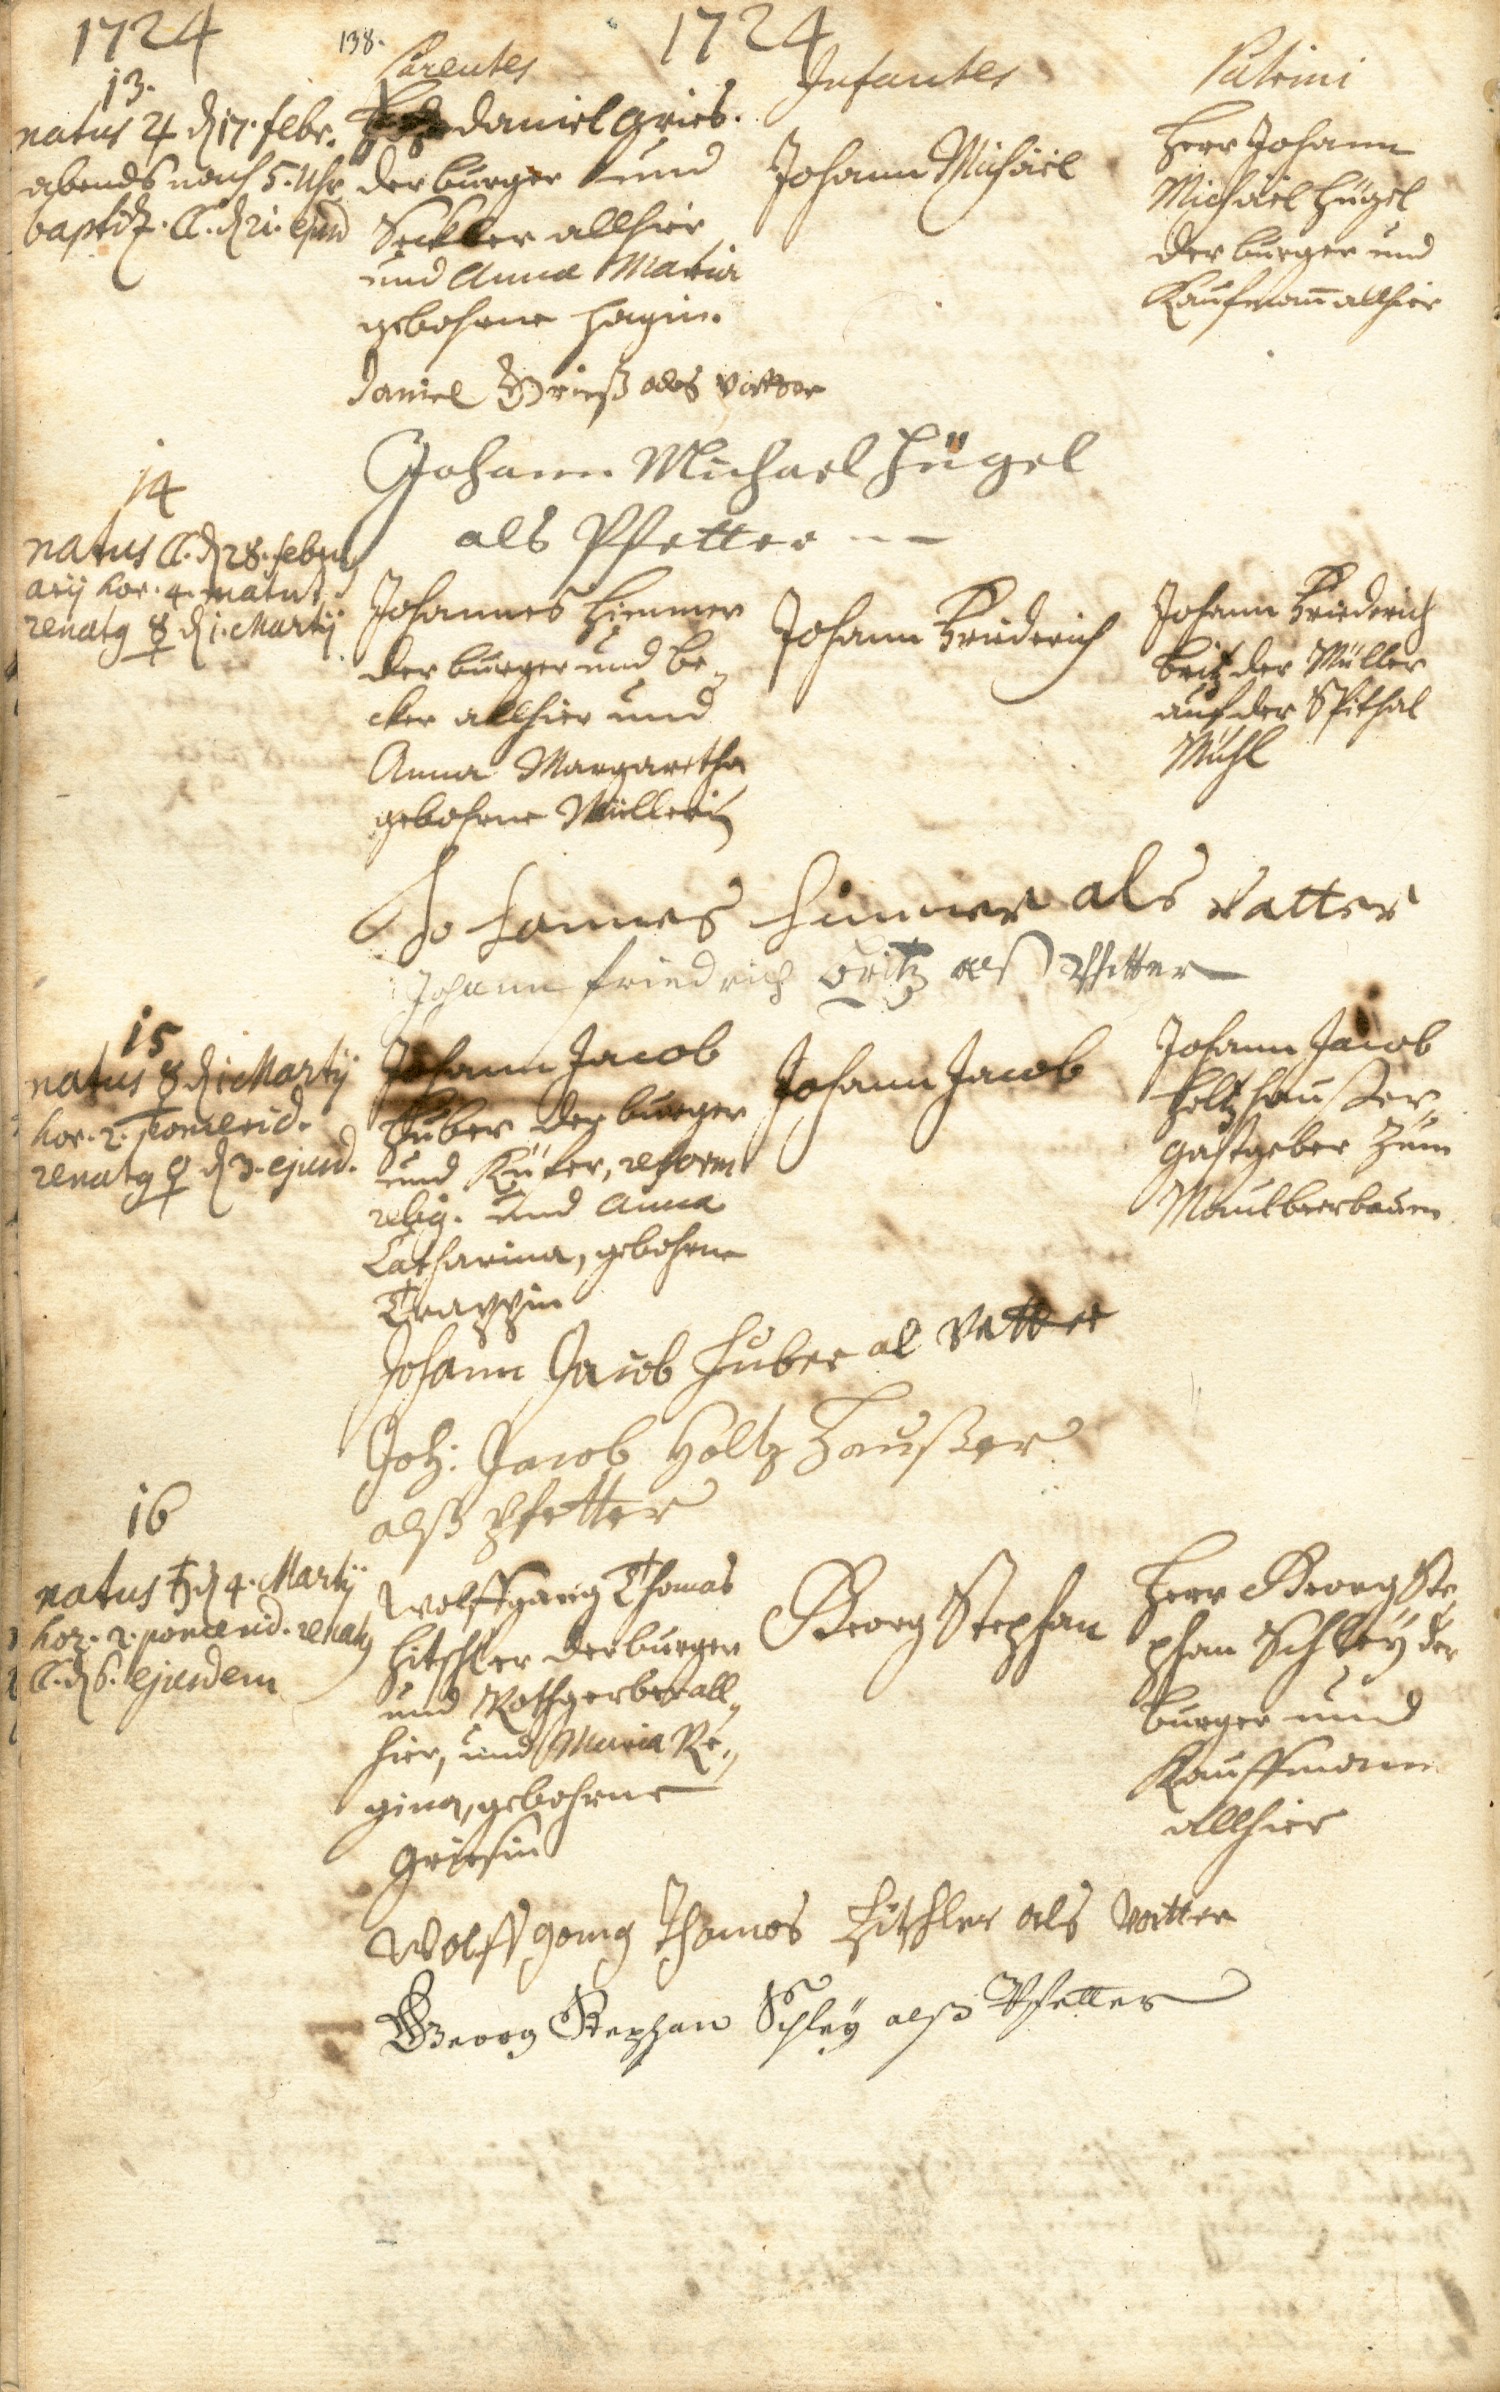 1724
138.
1724
Parentes
Infantes
Patrini
13.
natus ♃ d 17. febr.
abends nach 5. Uhr
baptiz. ☾. d 21. ejusd
daniel Gries.
der burger und
Seckler allhier
und Anna Maria
gebohrne Hagin.
Johann Michael
Herr Johann
Michael Hügel
der burger und
Kaufmann allhier
Daniel Grieß als Vatter
Johann Michael Hügel
als Pfetter
14
natus ☾. d 28. febru
arij hor. 4. matut.
renatq ☿ d 1. Martij
Johannes Himmer
der burger und be-
cker allhier und
Anna Margaretha
gebohrne Müllerin
Johann Friederich
Johann Friederich
Britz der Müller
auf der Spithal
Mühl
Johannes Himmer als Vatter
Johann friedrich Britz alß Pfetter
15
natus ☿ d 1 Martij
hor. 2. pomerid.
renatq ♀ d 3. ejusd.
Johann Jacob
Huber der burger
und Küfer, reform
relig. und Anna
Catharina, gebohrne
Trappin
Johann Jacob
Johann Jacob
Holtzhaußer,
gastgeber zum
Maulbeerbaum
Johann Jacob Huber al Vatter
Joh: Jacob Holtzhaußer
alß Pfetter
16
natus ♄ d 4. Martij
hor. 2. pomerid. renatq
☾. d 6. ejusdem
Wolffgang Thomas
Hitschler der burger
und Rothgerber all-
hier, und Maria Re-
gina, gebohrne
Griesin
Georg Stephan
Herr Georg Ste-
phan Schley der
burger und
Kauffmann
allhier
Wolffgang Thomas Hitschler als Vatter
Georg Stephan Schley alß Pfetter